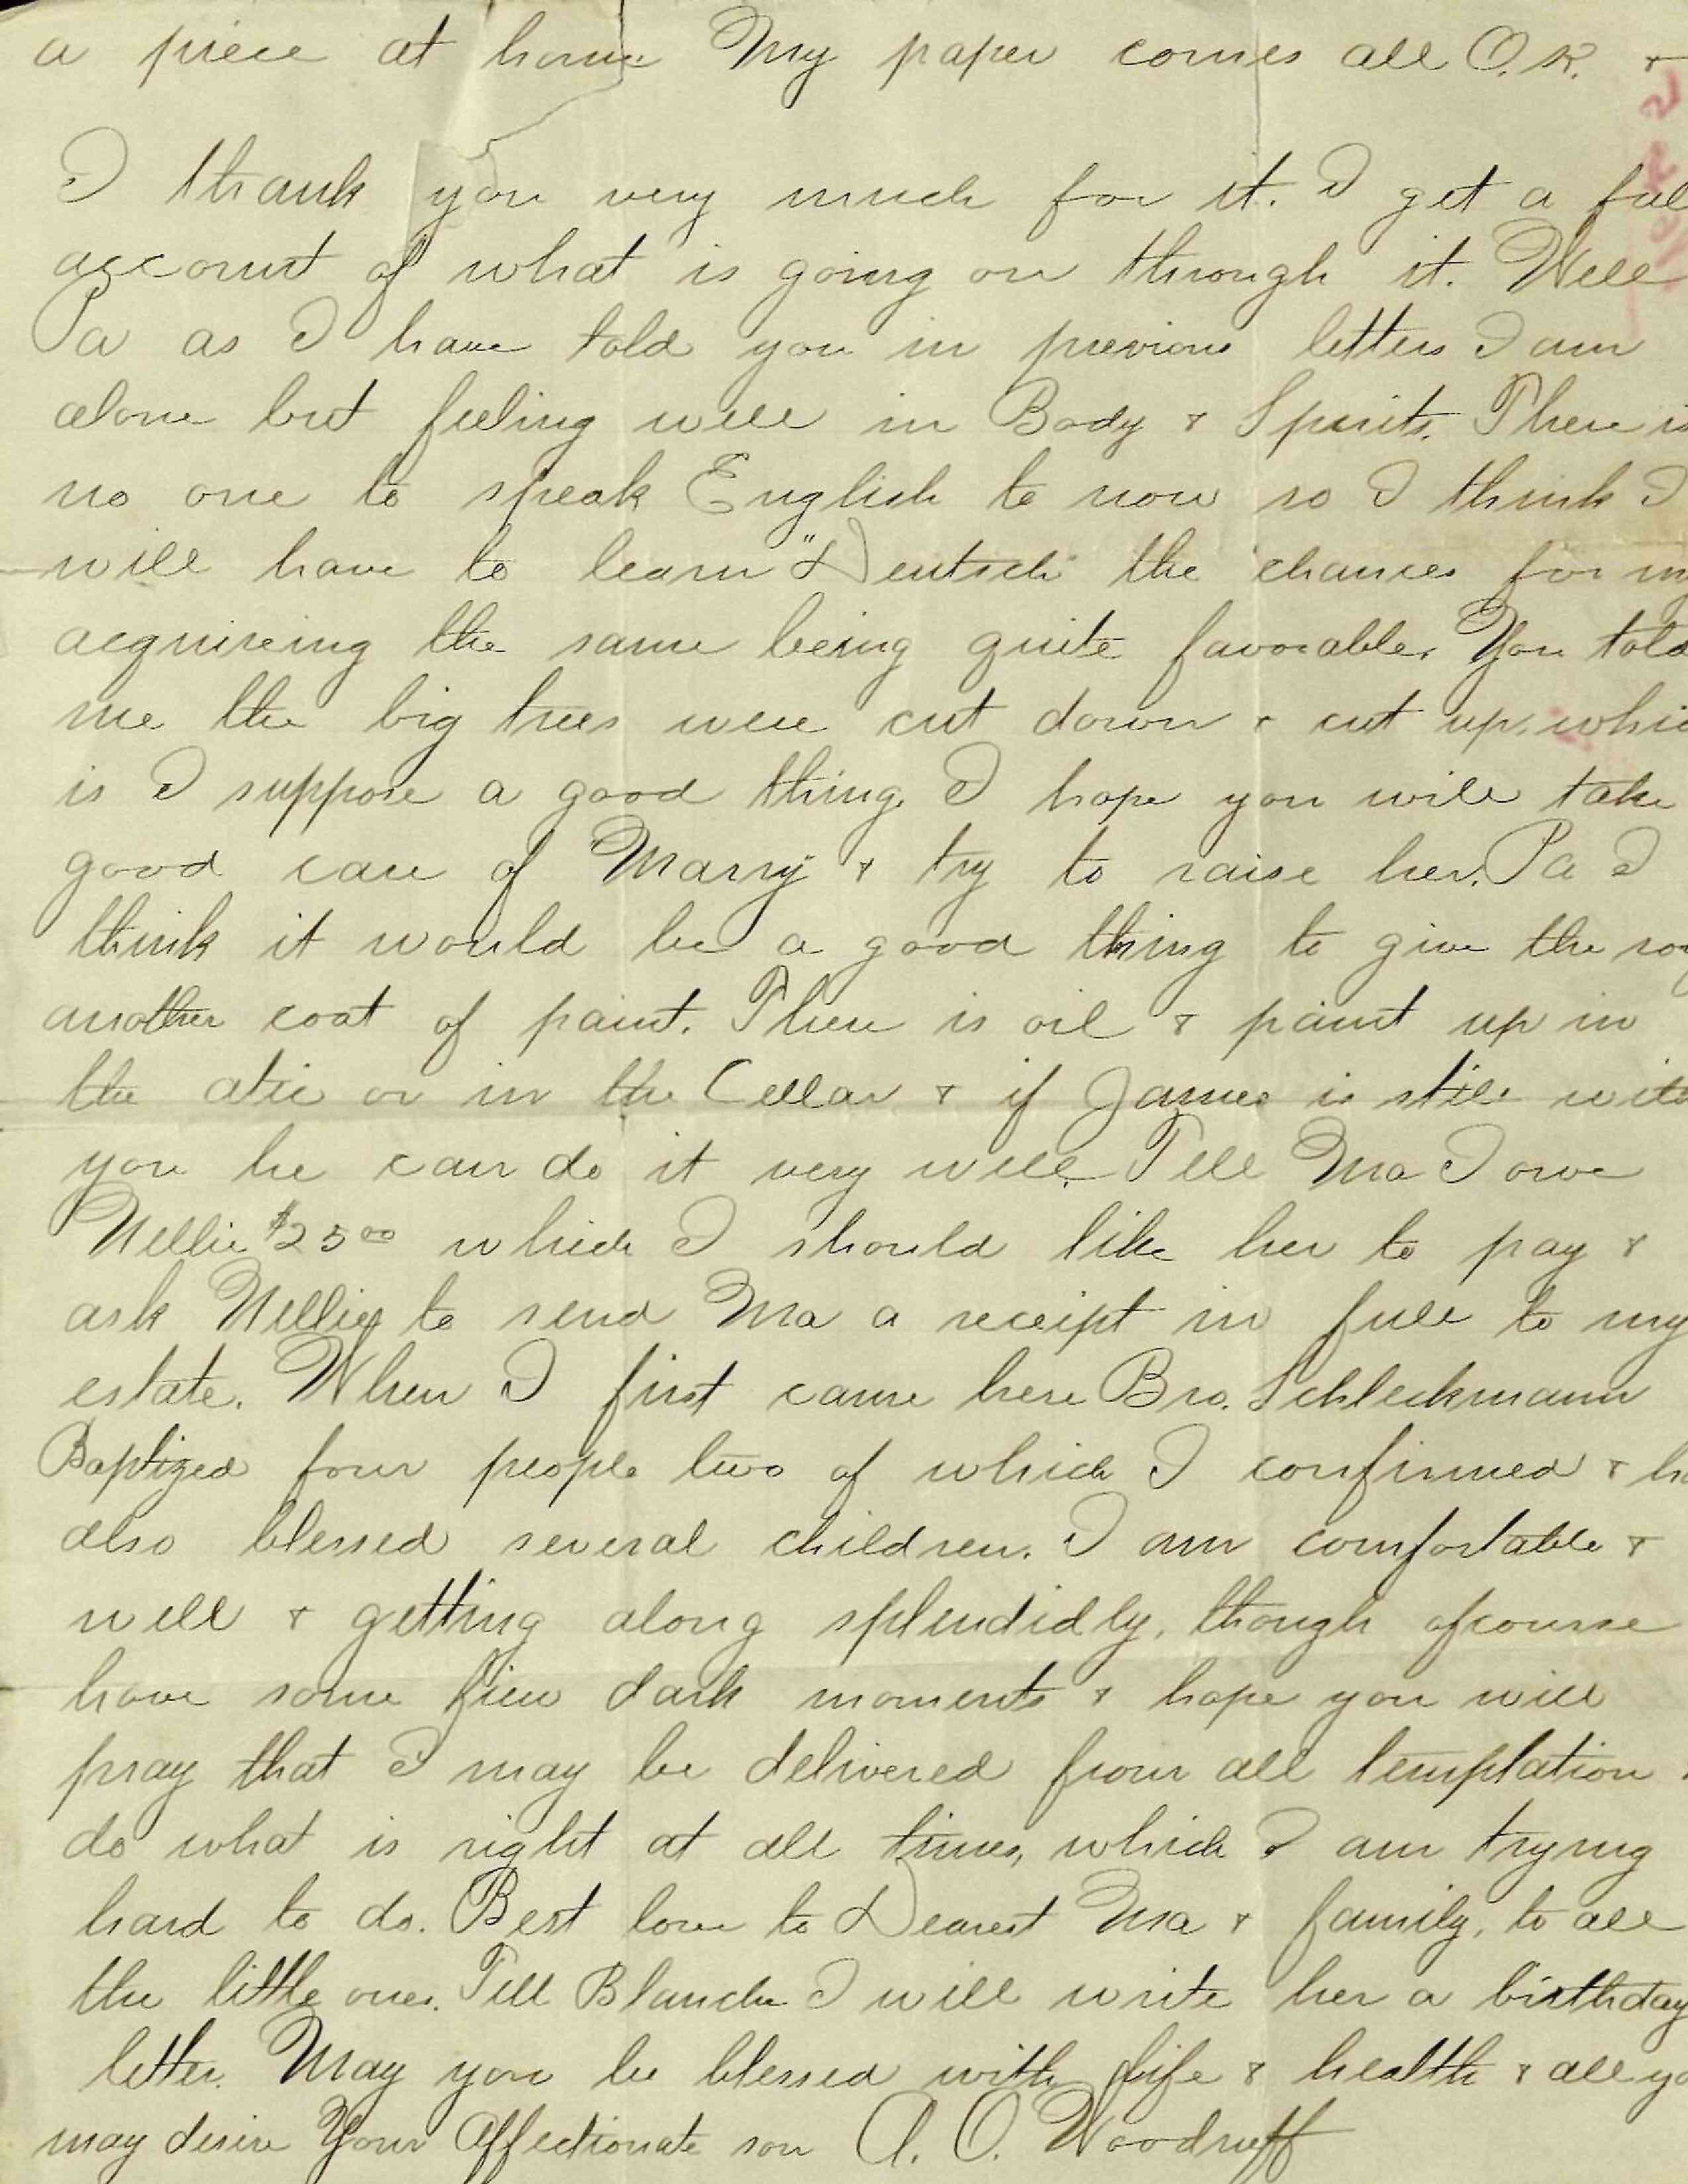 a piece at home My paper comes all O.K. &
I thank you very much for it. I get a ful
account of what is going on through it. Well
Pa as I have told you in previous letters I am
alone but feeling well in Body & Spirits. There is
no one to speak English to now so I think I
will have to learn "Deutsch" the chances for my
acquireing the same being quite favorable. You told
me the big trees were cut down & cut up, whic
is I suppose a good thing. I hope you will take
good care of "Marry" & try to raise her. Pa I
think it would be a good thing to give the roo
another coat of paint. There is oil & paint up in
the atic or in the Cellar & if James is still with
you he can do it very well. Tell Ma I owe
Nellie $25 00 which I should like her to pay &
ask Nellie to send Ma a receipt in full to my
estate. When I first came here Bro. Schleckmann
Baptized four people two of which I confirmed & ha
also blessed several children. I am comfortable &
well & getting along splendidly, though ofcourse
have some few dark moments & hope you will
pray that I may be delivered from all temptation &
do what is right at all times, which I am trying
hard to do. Best love to Dearest Ma & family, to all
the little ones. Tell Blanche I will write her a birthday
letter. May you be blessed with life & health & all yo
may desire Your Affectionate son A. O. Woodruff